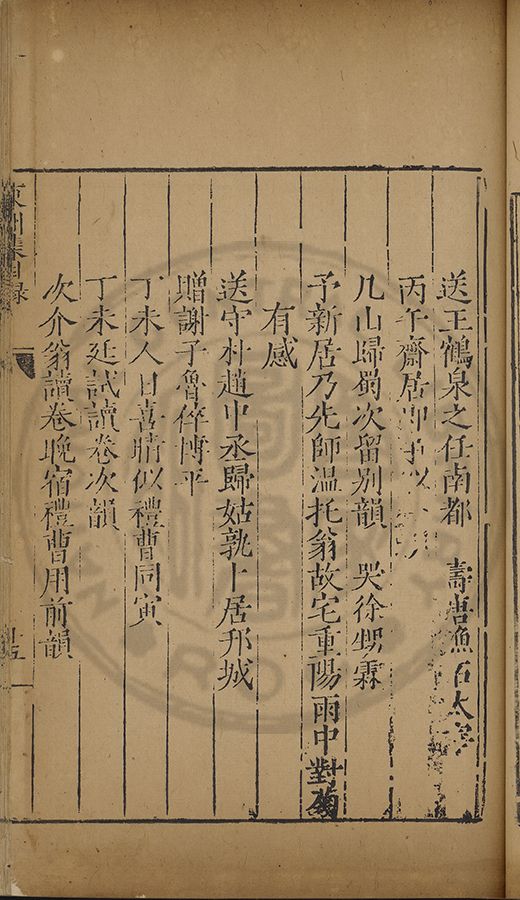 送王鶴泉之任南都　壽唐漁石太宰
丙午齋居即事似
几山歸蜀次留別韻　哭徐甥霖
予新居乃先師温托翁故宅重陽雨中對菊
有感
送守朴趙中丞歸姑孰卜居邘城
贈謝子魯倅博平
丁未人日喜晴似禮曹同寅
丁未廷試讀卷次韻
次介翁讀卷晚宿禮曹用前韻
東洲集目録